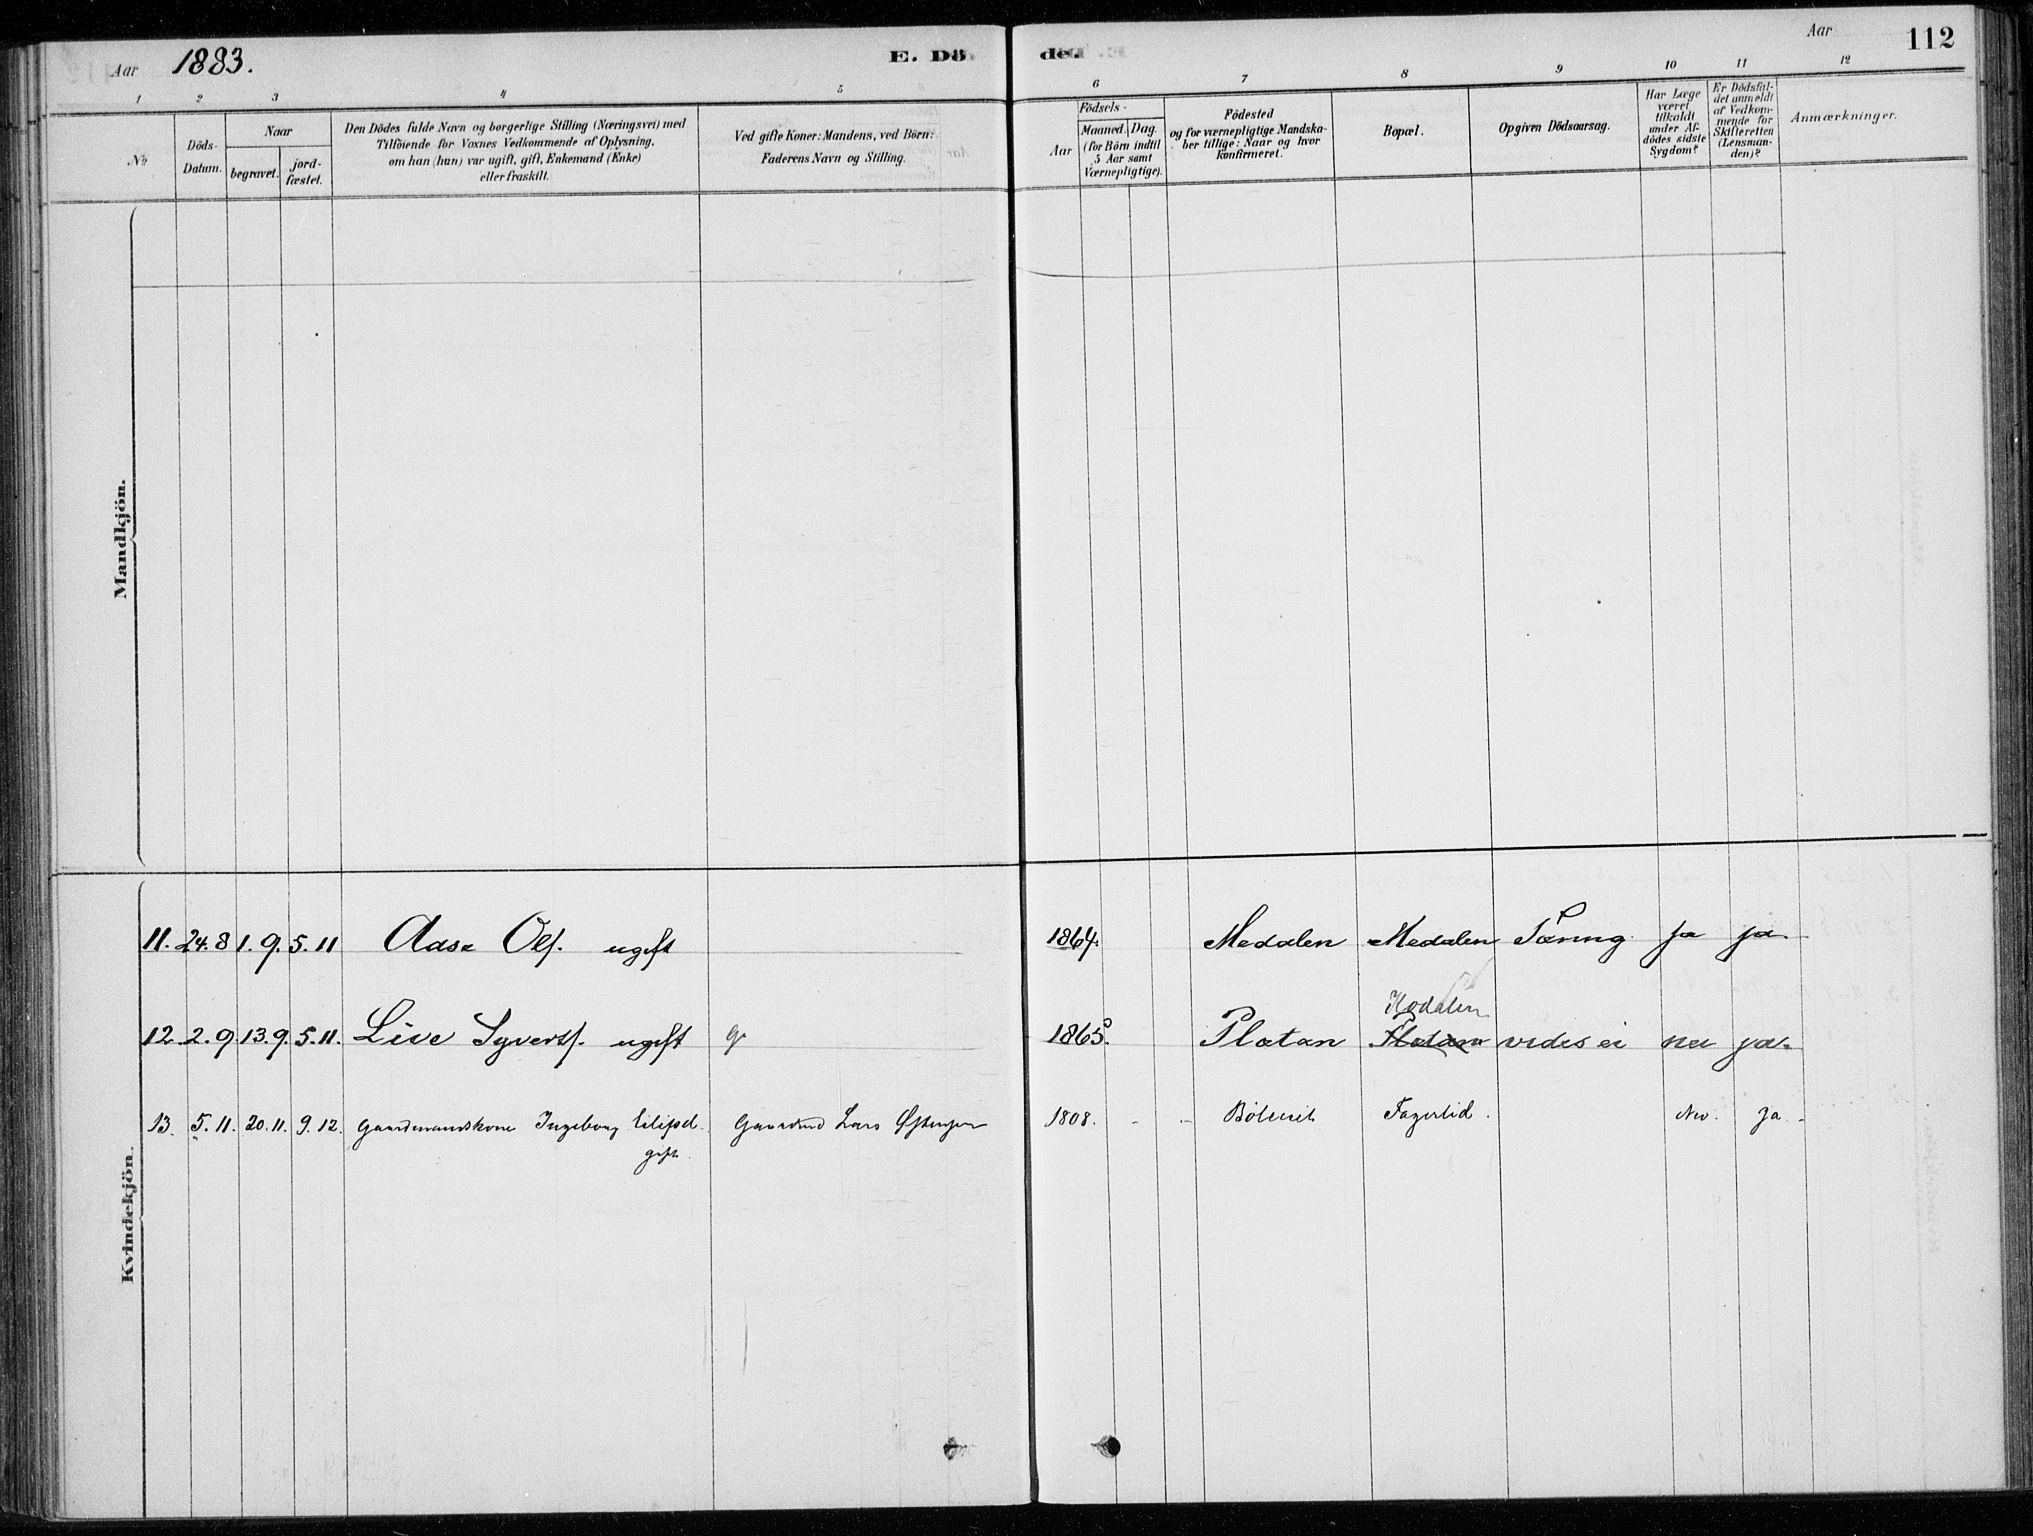 Aar 1883. E. Dö de. Aar 112
1 2 3 4 5 6 7 8 9 10 11 12
No
Döds-
Datum.
Naar
begravet.
jord-
fæstet.
Den Dödes fulde Navn og borgerlige Stilling (Næringsvei) med
Tilföiende for Voxnes Vedkommende af Oplysning,
om han (hun) var ugift, gift, Enkemand (Enke)
eller fraskilt.
Ved gifte Koner: Mandens, ved Börn:
Faderens Navn og Stilling.
Födsels-
Aar
Maaned. Dag.
(for Börn indtil
5 Aar samt
Værnepligtige).
Födested
og for værnepligtige Mandska-
ber tillige: Naar og hvor
konfirmeret.
Bopæl.
Opgiven Dödsaarsag.
Har Læge
været
tilkaldt
under Af-
dödes sidste
Sygdom?
Er Dödsfal-
det anmeldt
af Vedkom-
mende for
Skifteretten
(Lensman-
den)?
Anmærkninger.
Mandkjön.
Kvindekjön.
11. 24.8 1.9. 5.11 Aase Ols. ugift 1864. Medalen Medalen Tæring ja ja.
Hodalen
12. 2.9. 13.9. 5.11. Live Syverts. ugift g 1865. Platan Platan vides ei nei ja.
13. 5.11. 20.11. 9.12. Gaardmandskone Ingeborg Eilifsd. Gaardmd Lars 1808. Fagerlid. Nei. Ja.
gift.